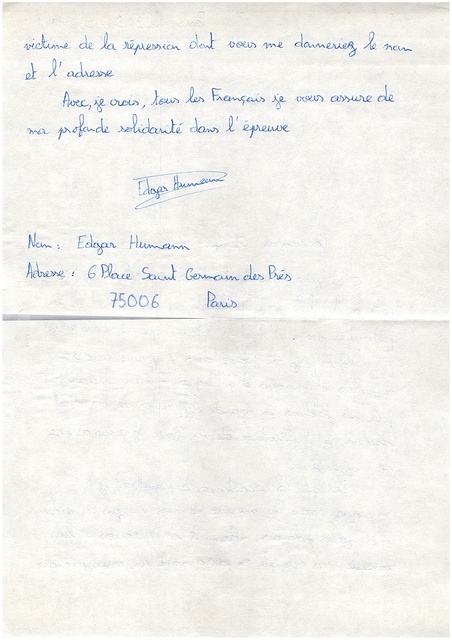 victime de la répression dont vous me donneriez le nom
et l'adresse
Avec, je crois, tous les Français je vous assure de
ma profonde solidarité dans l'épreuve
Edgar Humann
Nom : Edgar Humann
Adresse : 6 Place Saint Germain des Prés
75006 Paris